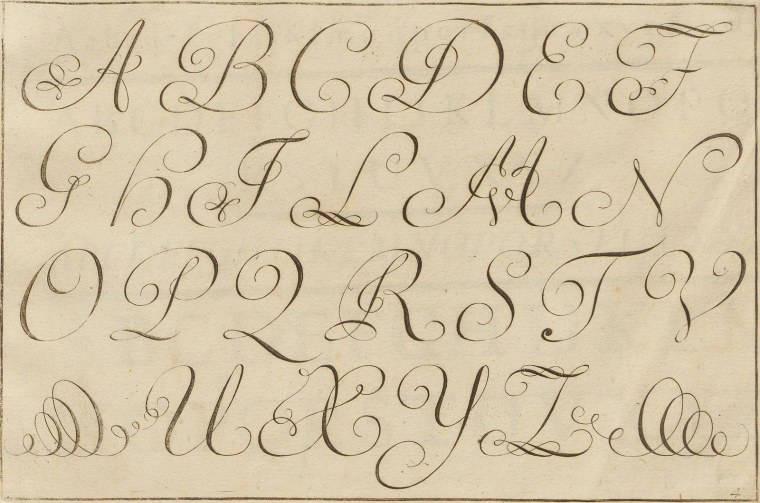 A B C D E F
G H I L M N
O P Q R S T V
U X Y Z
4